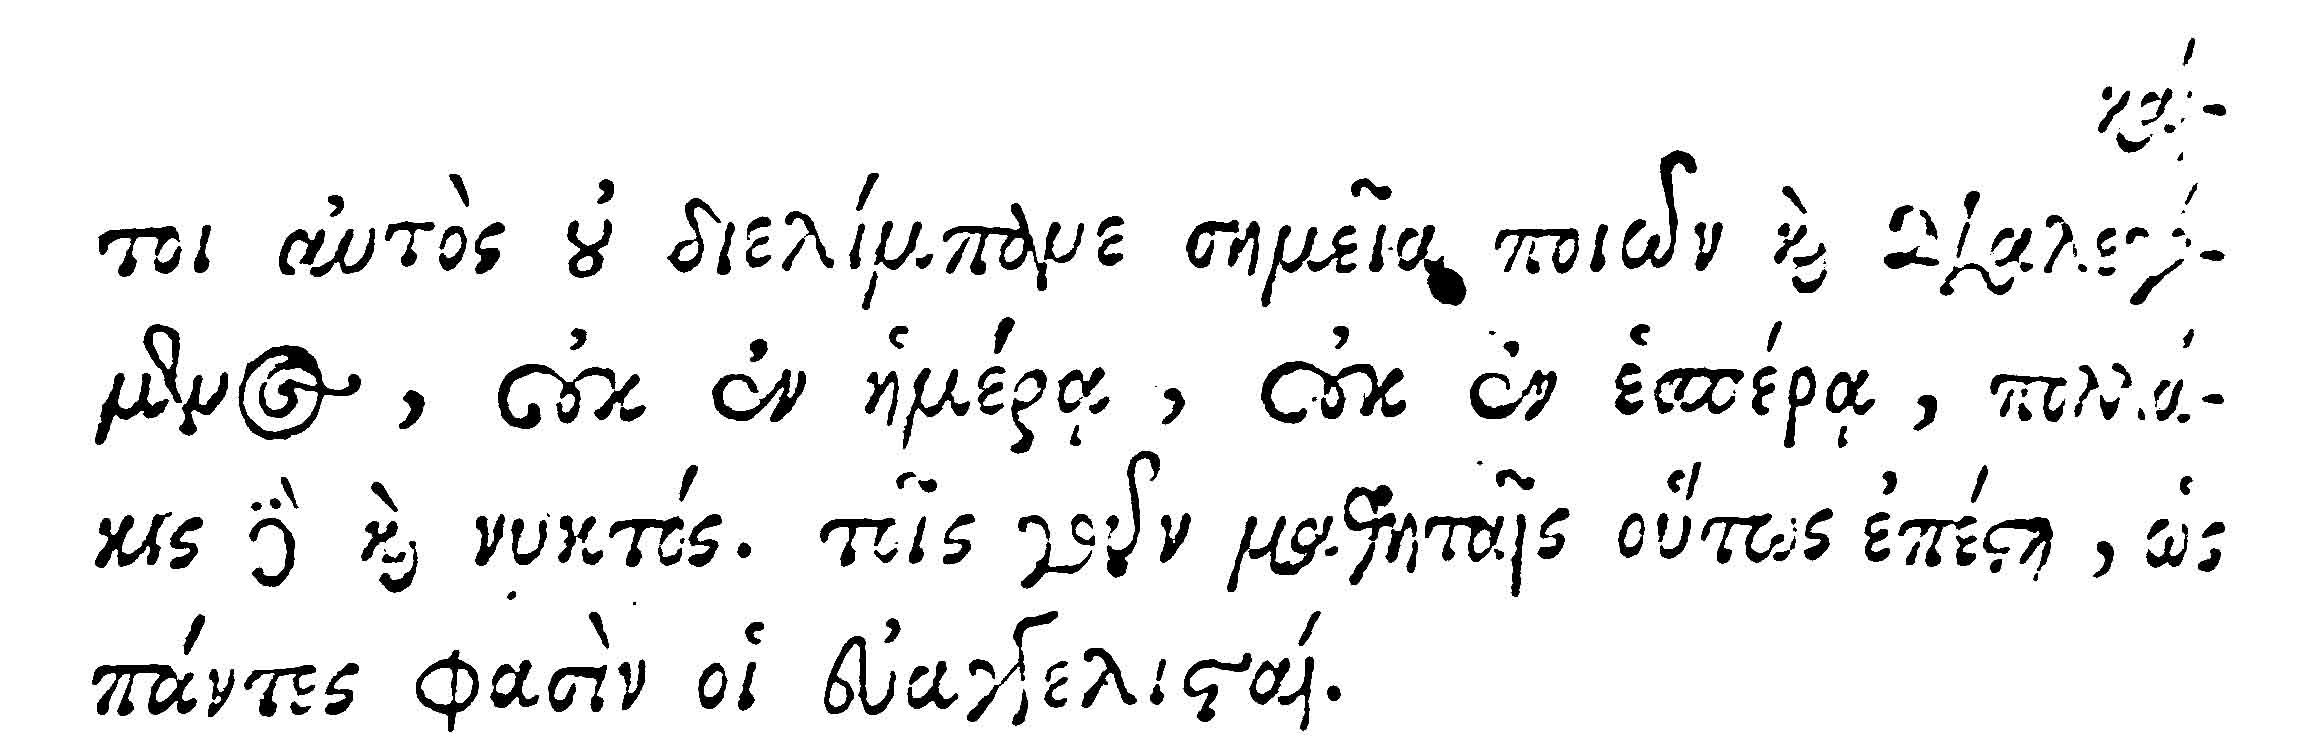 καί-
τοι αὐτὸς οὐ διελίμπανε σημεῖα ποιῶν καὶ διαλεγό-
μενος, οὐκ ἐν ἡμέρᾳ, οὐκ ἐν ἑσπέρᾳ, πολλά-
κις δὲ καὶ νυκτός. τοῖς γοῦν μαθηταῖς οὕτως ἐπέστη, ὡς
πάντες φασὶν οἱ εὐαγγελισταί.